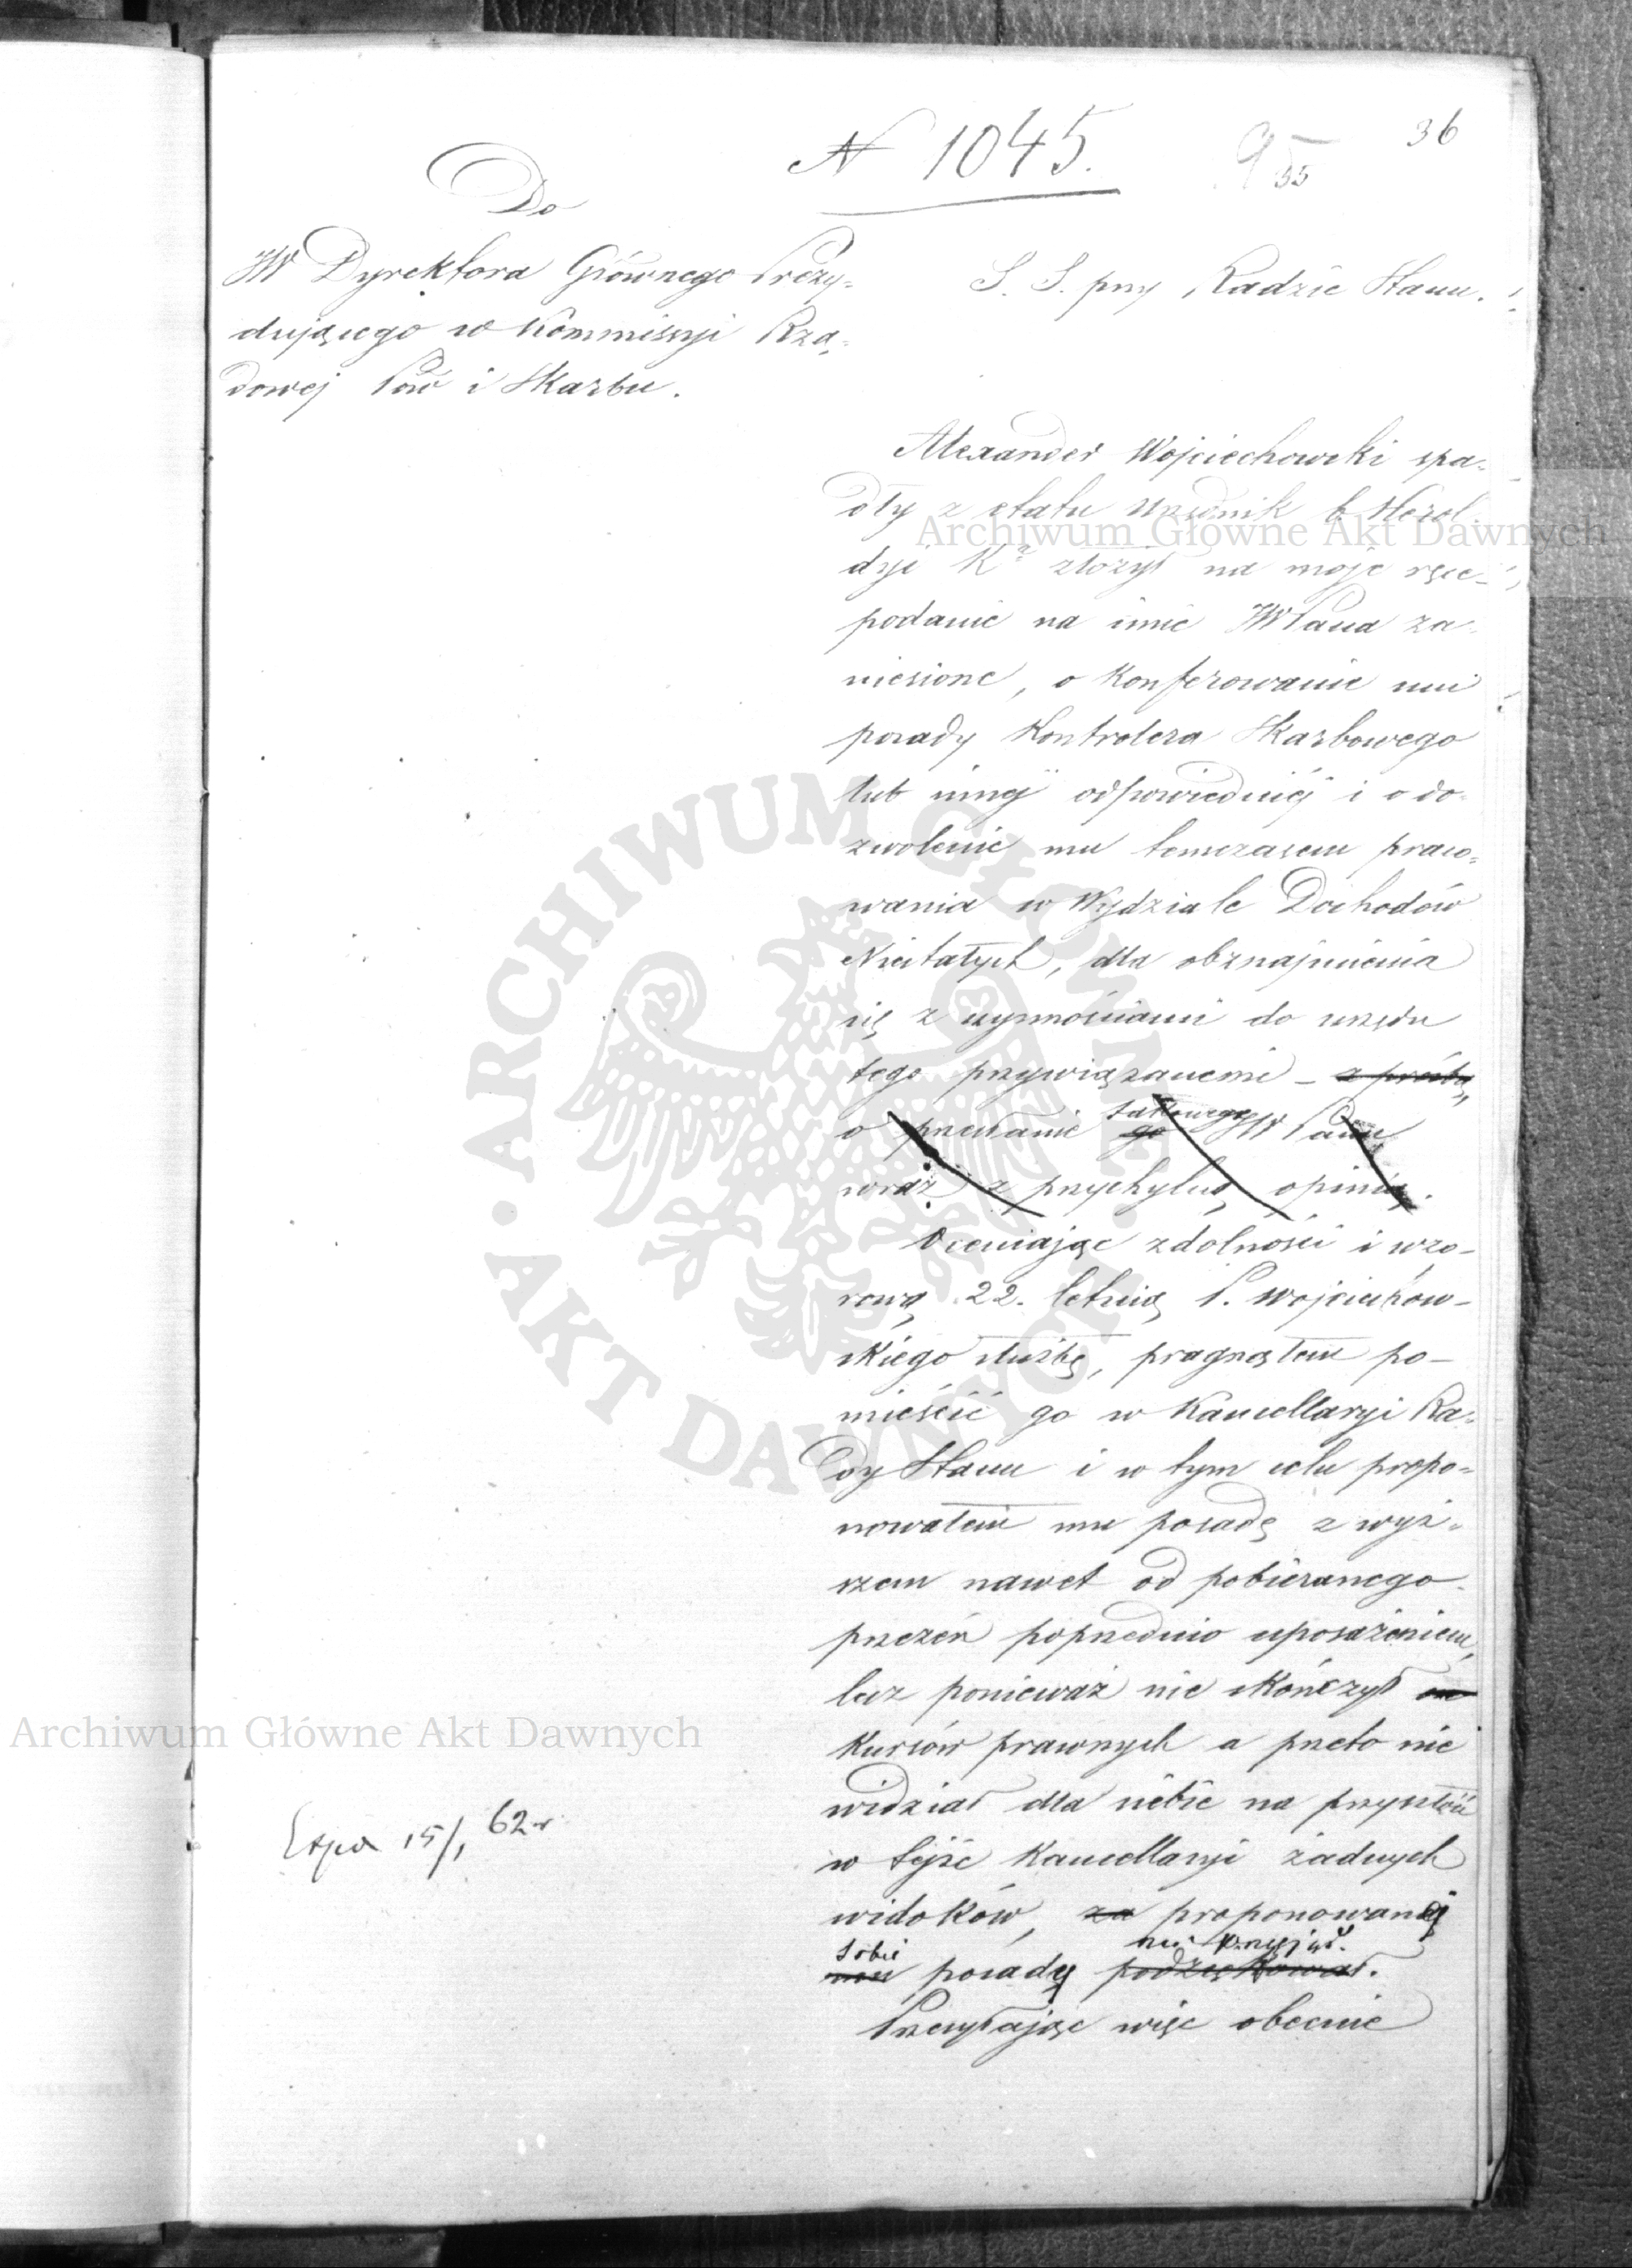 36
N 1045.
95
35
Do
JW Dyrektora Głównego Prezy-
dującego w Kommissyi Rzą-
dowej Pów i Skarbu.
S. S. przy Radzie Stanu.
Alexander Wojciechowski spa-
dły z etatu urzędnik b. Herol
dyi Kr złożył na moje ręce
podanie na imie JWPana za-
niesione, o konferowanie mu
posady Kontrolera Skarbowego
lub innéj odpowiedniéj i o do-
zwolenie mu temczasem praco-
wania w Wydziale Dochodów
Niestałych, dla obznajmienia
się z czynnościami do urzędu
tego przywiązanemi – z prośbą
o przesłanie go takowego JW Panu
wraz z przychylną opinią.
Oceniając zdolności i wzo-
rową 22. letnią P. Wojciechow-
skiego służbę, pragnąłem po-
mieścić go w Kancellaryi Ra-
dy Stanu i w tym celu propo-
nowałem mu posadę z wyż-
szem nawet od pobieranego
przezeń poprzednio uposażeniem,
lecz ponieważ nie skończył
Kursów prawnych a przeto nie
widział dla siebie na przyszłość
w tejże Kancellaryi żadnych
widoków, za proponowanéj
mu sobie posady podziękował nie przyjął.
Przesyłając więc obecnie
Exped 15/1 62 r
Archiwum Główne Akt Dawnych
Archiwum Główne Akt Dawnych
ARCHIWUM GŁÓWNE AKT DAWNYCH